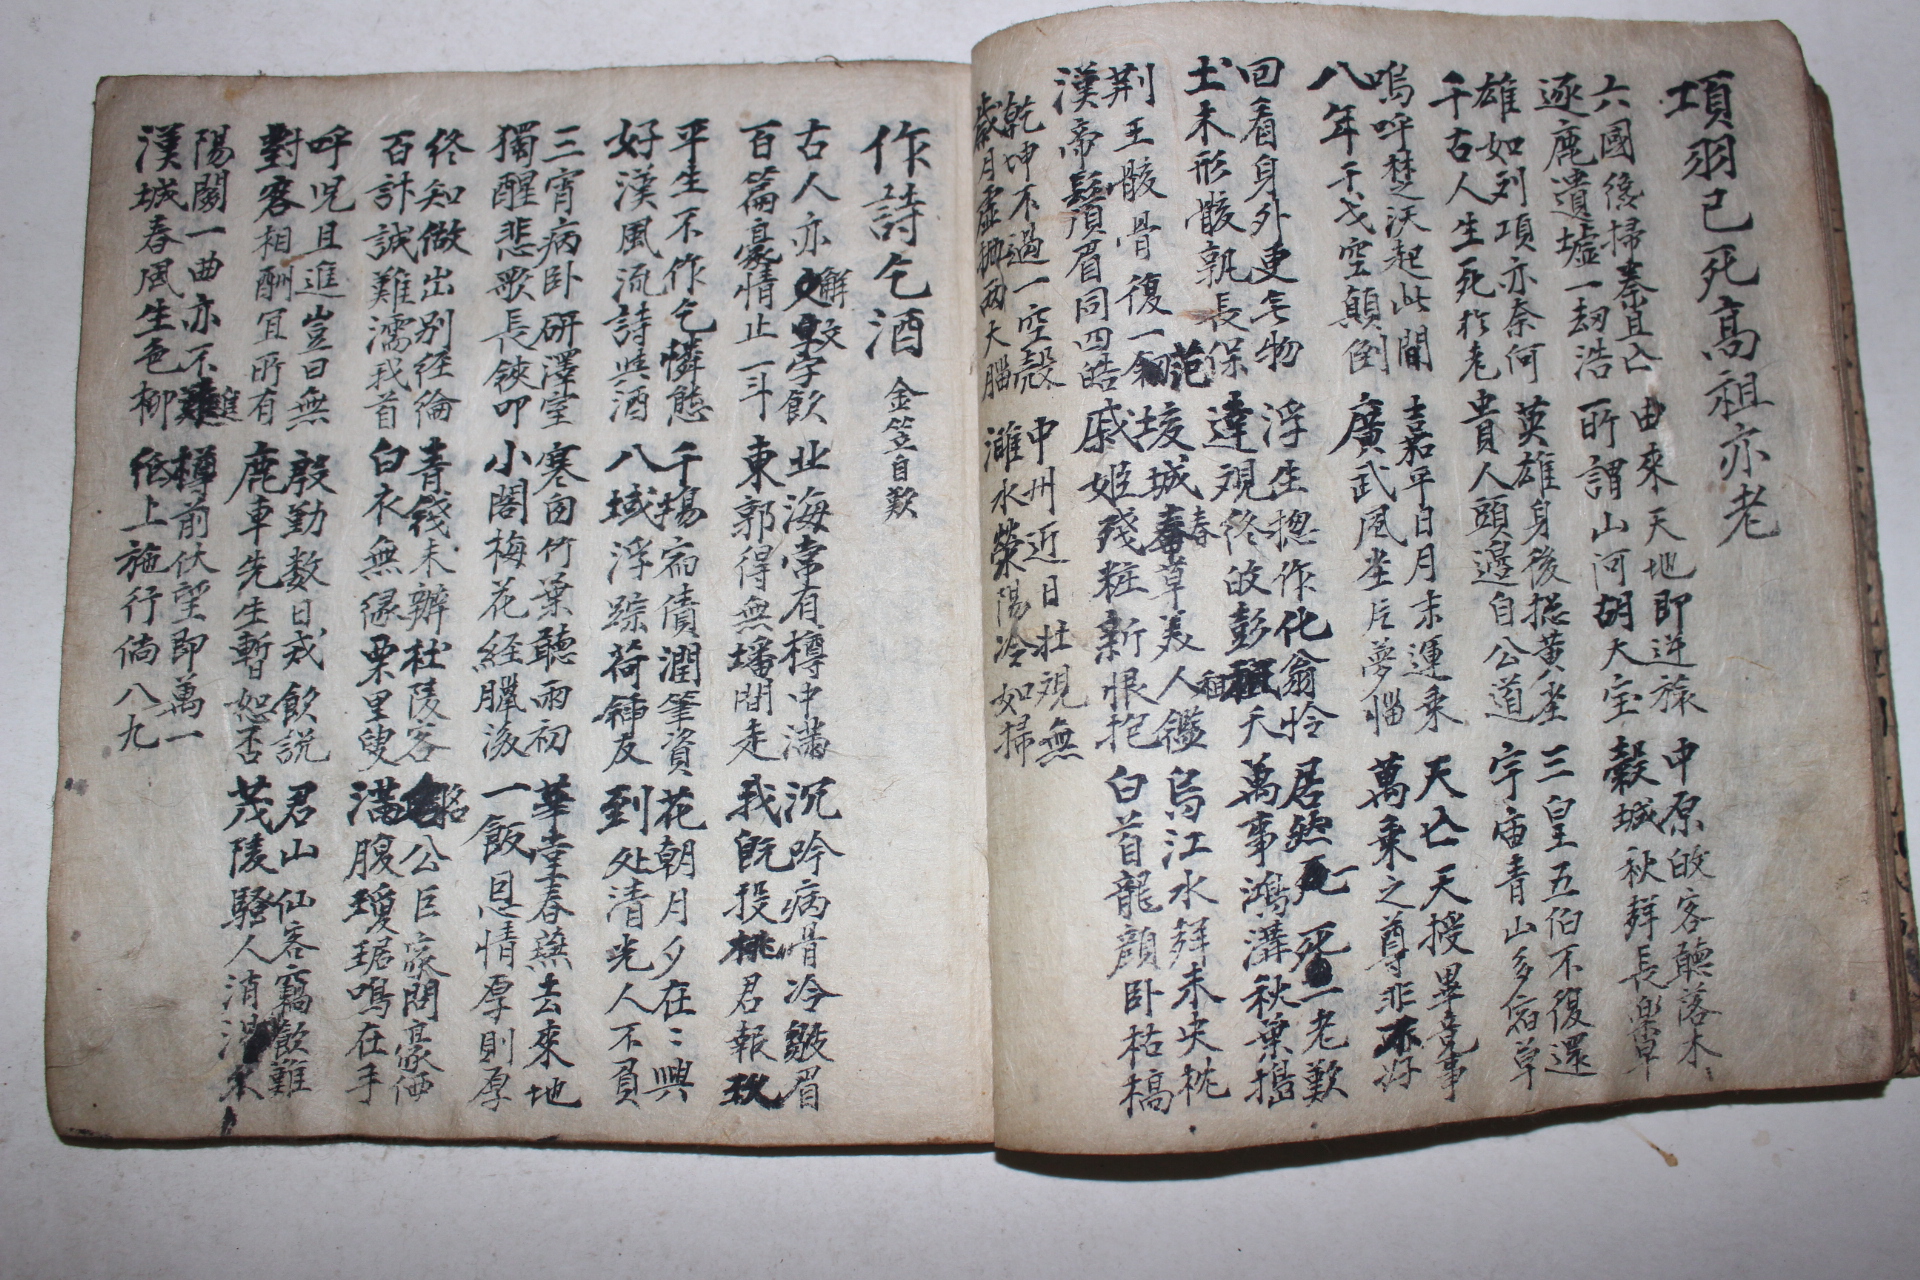 項羽已死高祖亦老
六國後掃秦且亡
逐鹿遺墟一刼浩
由來天地即逆旅
所謂山河胡大宝
中原皎客聽落木
穀城秋辤長樂草
雄如列項亦奈何
千古人生死於老
英雄身後捴黃埃
貴人頭邊自公道
三皇五伯不復還
宇宙青山多宿草
嗚呼楚沃起此間
八年干戈空顛倒
吉嘉平日月末運乗
廣武風埃片夢惱
天亡天授畢竟事
萬乗之尊非不好
回看身外更无物
土木形骸孰長保
浮生揔作化翁怜
達观終皎彭祖夭
居然一死一老歎
萬事鴻溝秋葉掃
荆王骸骨復一范
漢帝鬚眉同四皓
垓城春草美人鑑
戚姬殘粧新恨抱
烏江水辤未央枕
白首龍顔卧枯槁
乾坤不過一空殼
歲月虛抛兩大腦
中州近日壮視無
濉水滎陽冷如掃
作詩乞酒 金笠自歎
古人亦解蛟字飲
百篇豪情止一斗
北海常有樽中滿
東郭得無墦間走
沉吟病骨冷皺眉
我旣投桃君報玖
平生不作乞憐態
好漢風流詩與酒
千場宿債潤筆資
八域浮踪荷鍤友
花朝月夕在〻興
到处清光人不負
三宵病卧研澤室
獨醒悲歌長鋏叩
寒囱竹葉聽雨初
小閣梅花經臘後
華堂春蕪去來地
一飯恩情厚則厚
終知做出別經綸
百計誠難濡我首
青錢未辦杜陵客
白衣無緣栗里叟
銘公巨家問豪価
滿腹瓊琚鳴在手
呼児且進豈曰無
對客相酬宜所有
殷勤数日戎飲説
鹿車先生暫恕否
君山仙客竊飲難
茂陵騷人消渴
陽關一曲亦不進
漢城春風生色柳
樽前伏望即萬一
紙上施行倘八九